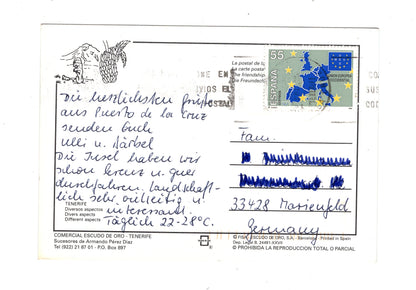 Die herzlichsten Grüße
aus Puerto de la Cruz
senden Euch
Ulli u. Bärbel
Die Insel haben wir
schon kreuz u. quer
durchfahren. Landschaft-
lich sehr vielseitig u.
interessant.
Täglich 22-28°C.
TENERIFE
Diversos aspectos
Divers aspects
Different aspects
COMERCIAL ESCUDO DE ORO - TENERIFE
Sucesores de Armando Pérez Díaz
Tel (922) 21 87 01 - P.O. Box 897
La postal de la
La carte postale
The friendship
De Freundsch
55
ESPAÑA
Fam.
33428 Marienfeld
Germany
FISA ESCUDO DE ORO, S.A. - Barcelona - Printed in Spain
© PROHIBIDA LA REPRODUCCION TOTAL O PARCIAL